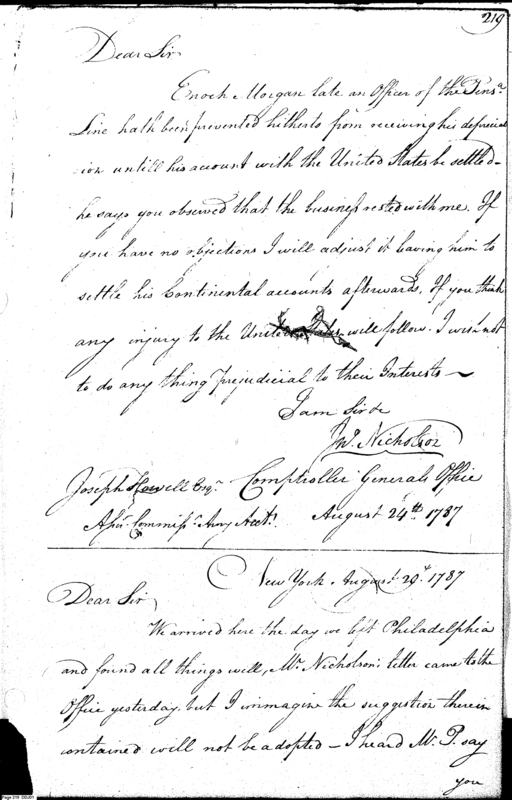 219
Dear Sir
Enoch Morgan late an Officer of the Pensa.
Line hath been prevented hitherto from receiving his depreciat
ion untill his account with the United States be settled -
he says you observed that the business rested with me. If
you have no objections I will adjust it leaving him to
settle his Continental accounts afterwards, If you think
any injury to the United States will follow. I wish not
to do any thing prejudicial to their Interests -
I am Sir &c
Jno. Nicholson
Joseph Howell Esqr. Comptroller Generals Office
Assr. Commissr. Army Accts. August 24th 1787
New York August 29th 1787
Dear Sir
We arrived here the day we left Philadelphia
and found all things well, Mr. Nicholson's letter came to the
Office yesterday. but I immagine the suggestion therein
contained will not be adopted - I heard Mr. P. say
you
Page 219